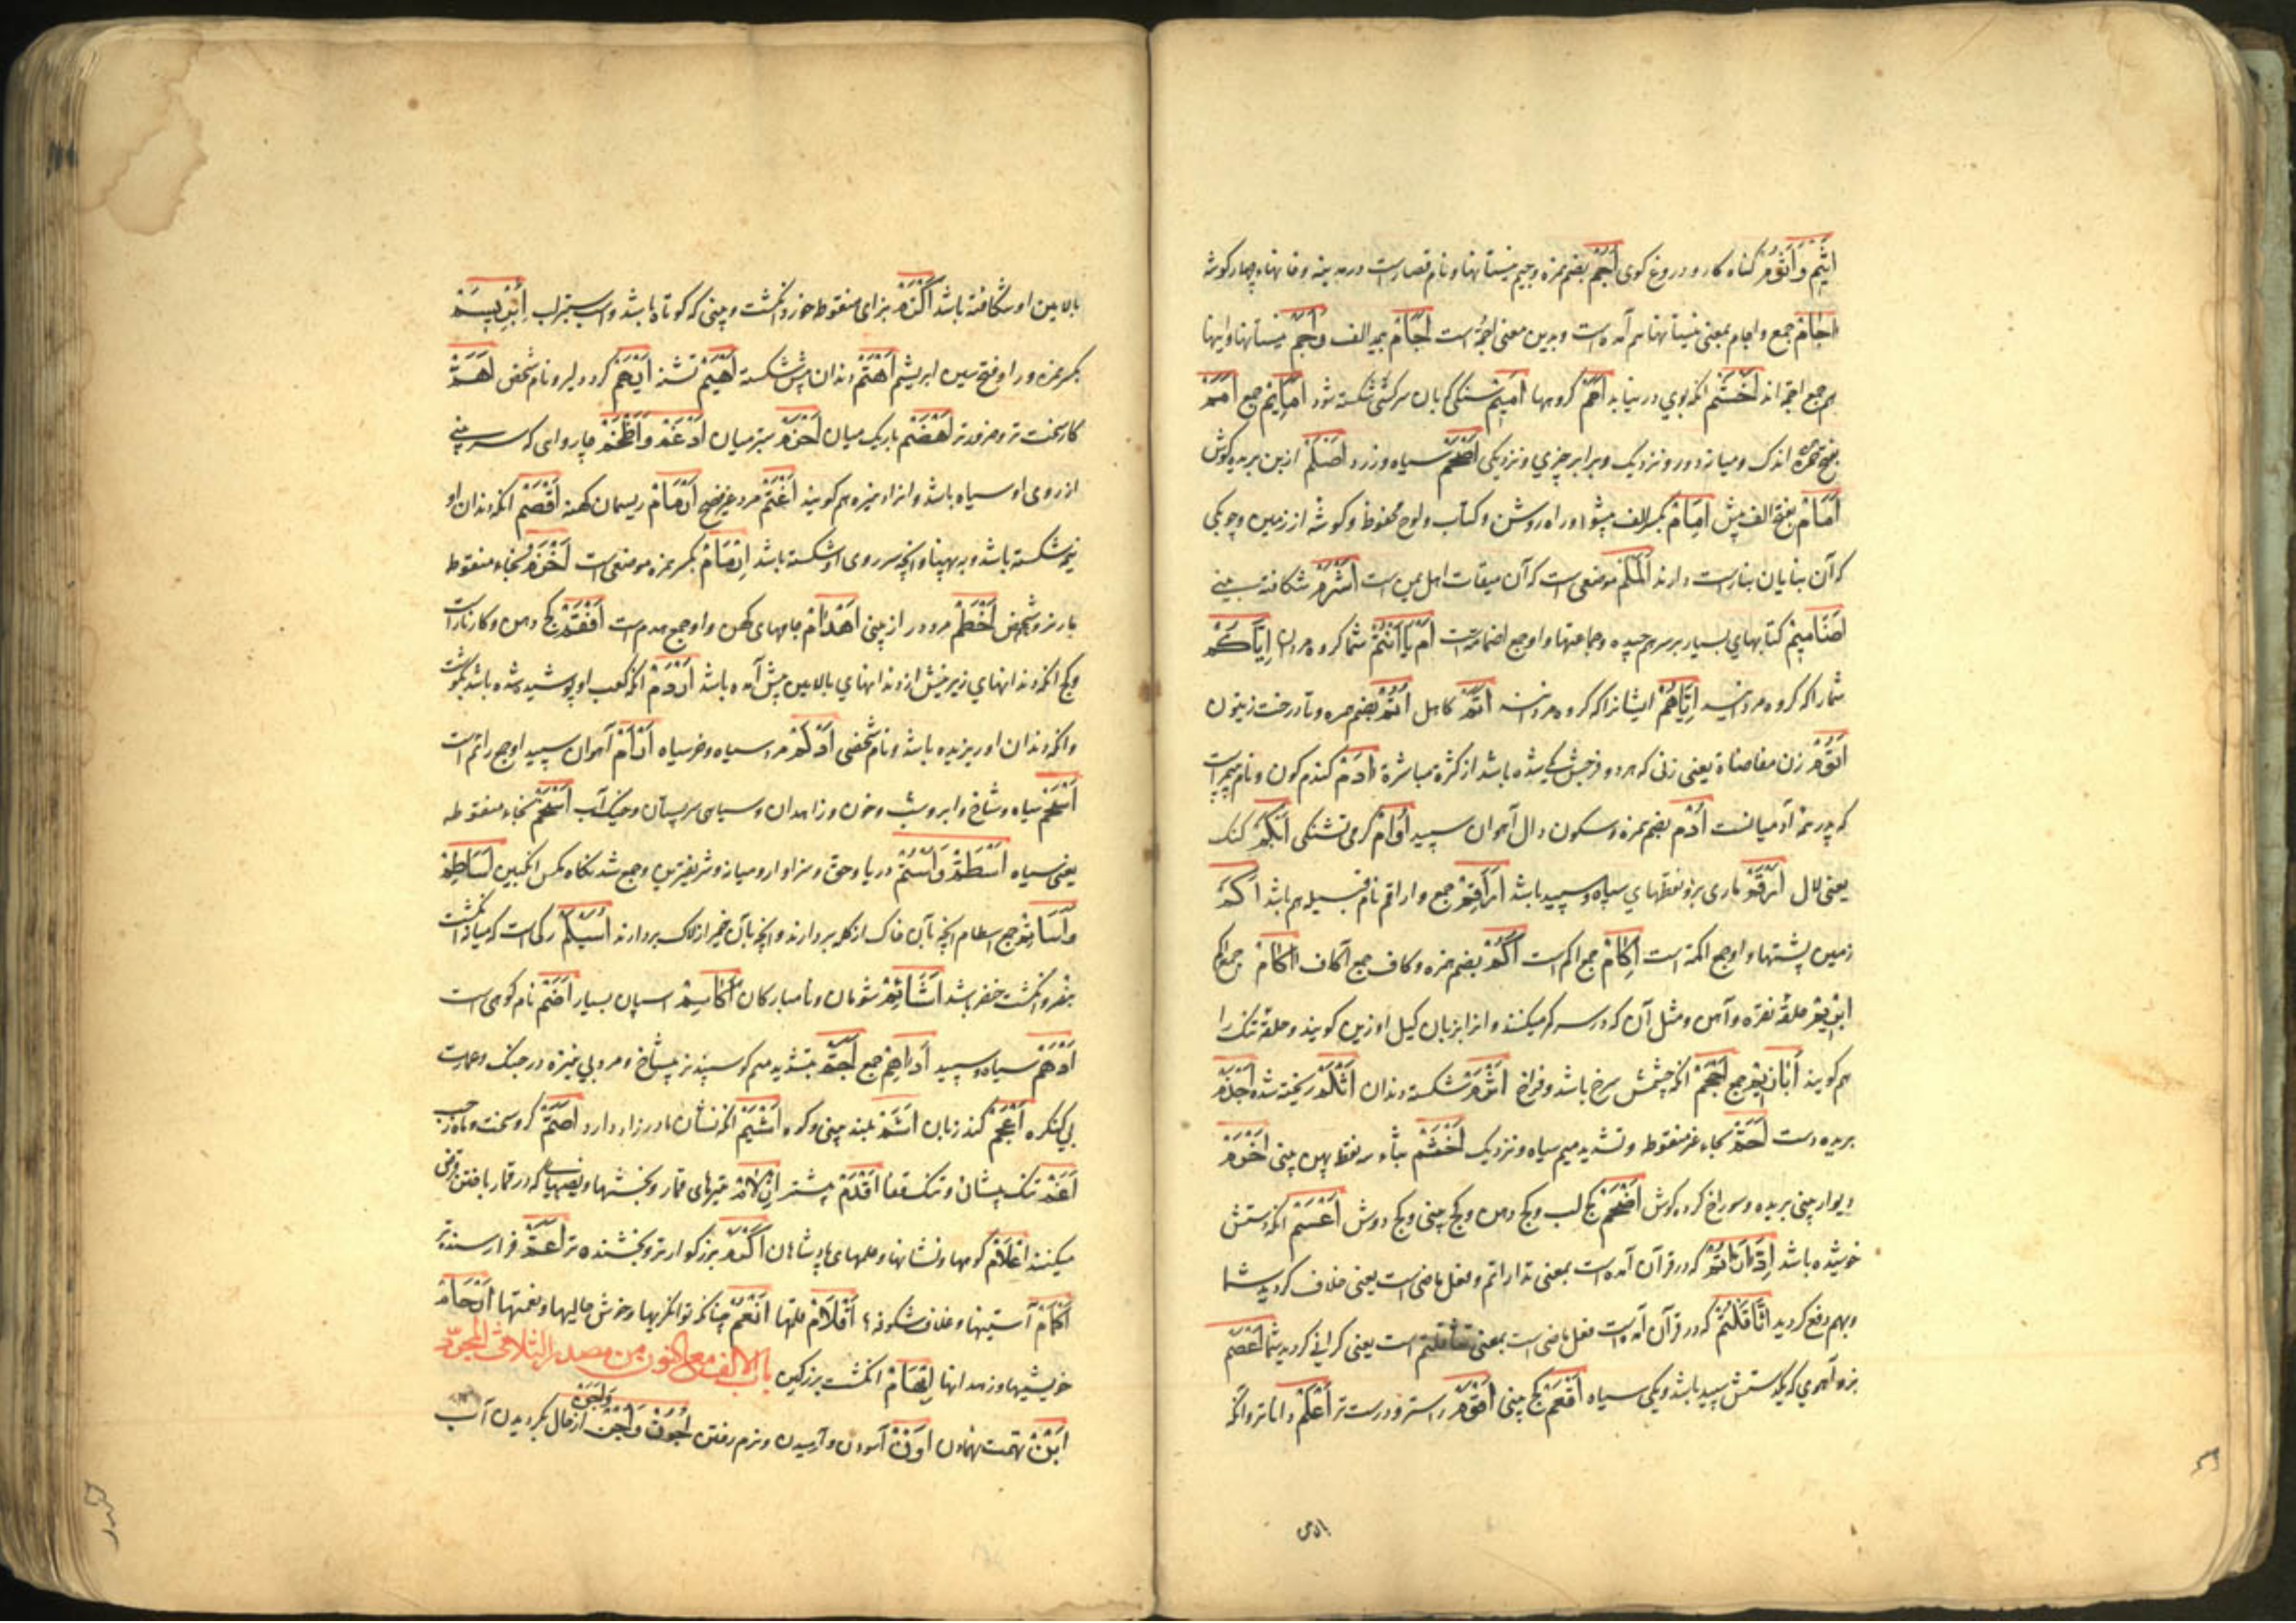 اَثِیْمْ وَ اَثُوْمْ گناه کار و دروغ کوی اُجُمْ بضم همزه و جیم نیستانها و نام قصاریست در مدینه و خانهاء چهار کوشه
اٰجَامْ جمع و اجام بمعنی نیستانها هم آمده است و بدین معنی اجمُ است اٰجَامْ بمد الف وَ اُجُمْ نیستانها و اینها
هم جمع اجمه اند اَخْشَمْ انکه بوي در نیابد اُمَمْ کروهها اَمِیْمْ سنکی که بان سر کسی شکسته شود اَمَائِمْ جمع اَمَمْ
بفتح همزه اندک و میانه دور و نزدیک و برابر چیزي و نزدیکی اَصْحَمْ سیاه و زرد اَصْلَمْ از بن بریده کوش
اَمَامْ بفتح الف پیش اِمَامْ بکسر الف پیشوا و راه روشن و کتاب و لوح محفوظ و کوشه از زمین و چوبکی
که آن بنایان بنا راست دارند اَلَمْلَمْ موضعی است که آن میقات اهل یمن است اَشْرَمْ شکافته بینی
اَضَامِیْمْ کتابهاي بسیار بر سر هم چیده و جماعتها و او جمع اضمامة است اَمْ یَا اَنْتُمْ شما کروه مردان اِیَّاکُمْ
شما را که کروه مردانید اِیَّاهُمْ ایشانرا که کروه مردانند اَتَمّْ کامل اُتُمْ بضم همزه و تا درخت زیتون
اَتُوْمْ زن مفاضاة یعنی زنی که هر دو فرجش یکی شده باشد از کثرة مباشرة اٰدَمْ کندم کون و نام پیغمبریست
که پدر همه آدمیانست اُدْم بضم همزه و سکون دال آهوان سپید اُوَامْ کرمی تشنکی اَبْکَمْ کنک
یعنی لال اَرْقَمْ ماری بزرک نقطهاي سیاه و سپید باشد اَرَاقِمْ جمع و اراقم نام قبیله هم باشد اَکَمْ
زمین پشتها و او جمع اکمة است اِکَامْ جمع اکم است اُکُمْ بضم همزه و کاف جمع اکاف اٰکَامْ جمع اکم
اِبْزِیْمْ حلقه نقره و آهن و مثل آن که در سر کمر میکنند و انرا بزبان کیل اوزین کویند و حلقه تنک را
هم کویند اَبَازِیْمْ جمع اَحْجَمْ انکه چشمش سرخ باشد و فراخ اَثْرَمْ شکسته دندان اَثْلَمْ ریخته شده اَجْذَمْ
بریده دست اَحَمّْ بحاء غیر منقوطه و تشدید میم سیاه و نزدیک اَخْثَمْ بثاء سه نقطه پهن بینی اَخْرَمْ
دیوار بینی بریده و سوراخ کرده کوش اَضْجَمْ کج لب و کج دهن و کج بینی و کج دوش اَعْسَمْ انکه دستش
خوشیده باشد اِدَّارَأْتُمْ که در قرآن آمده است بمعنی تدارأتم و فعل ماضی است یعنی خلاف کردید شما
و بهم دفع کردید اِثَّاقَلْتُمْ که در قرآن آمده است فعل ماضی است بمعنی تثاقلتم است یعنی کرانی کردید شما اَعْصَمْ
بز و آهوي که یک دستش سپید باشد و یکی سیاه اَفْعَمْ کج بینی اَقْوَمْ راست تر و درست تر اَعْلَمْ داناتر و انکه
بالاس
بالایین او شکافته باشد اَکْزَمْ بزای منقوطه خورد انکشت و بینی که کوتاه باشد و اسب ستبر لب اِبْرِیْسَمْ
بکسر همزه و را و فتح سین ابریشم اَهْتَمْ دندان پیش شکسته اَهْیَمْ تشنه اَیْهَمْ کر و دلیر و نام شخصی اَهَمّْ
کار سخت تر و ضرور تر اَهْضَمْ باریک میان اَحْزَمْ ستبر میان اَدْغَمْ وَ اَطْخَمْ چاروای که سر بینی
از روی او سیاه باشد و انرا دیزه هم کویند اَغْتَمْ مرد غیر فصیح اَرْمَامْ ریسمان کهنه اَقْصَمْ انکه دندان او
نیمه شکسته باشد و به پهنا و انچه سر روی او شکسته باشد اِرْمَامْ بکسر همزه موضعی است اَخْزَمْ بخاء منقوطه
مار نر و شخص اَخْطَمْ مرد دراز بینی اَهْدَامْ جامهای کهن و او جمع هدم است اَفْقَمْ کج دهن و کار ناراست
و کج انکه دندانهاي زیر پیش از دندانهاي بالایین پیش آمده باشد اَدْرَمْ انکه کعب او پوشیده شده باشد بکوشت
و انکه دندان او ریزیده باشد و نام شخصی اَدْلَمْ مرد سیاه و خر سیاه اَرْاٰمْ آهوان سپید او جمع رائم است
اَسْحَمْ سیاه و شاخ و ابر و شب و خون و زاهدان و سیاهی سر پستان و خیک آب اَسْخَمْ بخاء منقوطه
یعنی سیاه اُسْطُمّْ وَ اُسْتُمّْ دریا و حق و سزاوار و میانه و شریفترین و جمع شدنکاه مکس انکبین اَسَاطِمْ
وَ اَسَاتِمْ جمع اسطام انچه بآن خاک از کله بردارند و انچه بآن خمیر از لاک بردارند اُسَیْلِمْ رکی است که میان انکشت
بنصر و انکشت خنصر باشد اَشَائِمْ شومان و نامبارکان اَکَاسِمْ اسپان بسیار اَضَمْ نام کوهی است
اَدْهَمْ سیاه و سپید اَدَاهِمْ جمع اَجَمّْ بتشدید میم کوسپند بز بیشاخ و مرد بی نیزه در جنک و عمارت
بی کنکره اَعْجَمْ کند زبان اَشَمّْ بلند بینی و کوه اَشْیَمْ انکه نشان مادر زاد دارد اَصَمّْ کر و سخت و ماه رجب
اَغَمّْ تنک پیشان و تنک قفا اَقْدَمْ پیشتر اَزْلَامْ تیرهای قمار و بخششها و نصیبها که در قمار باختن قرض
میکنند اَعْلَامْ کوهها و نشانها و علمهای پادشاهان اَکْرَمْ بزرکوارتر و بخشنده تر اَعَمّْ فرا رسنده تر
اَکْمَامْ آستینها و غلاف شکوفه اَقْلَامْ قلمها اَنْعُمْ چنانکه توانکریها و خوش حالیها و نعمتها اَرْحَامْ
خویشیها و زهدانها اِبْهَامْ انکشت بزرکین باب الالف مع النون من مصدر الثلاثی المجرّد
اَبْنْ تهمت نهادن اَوْنْ آسودن و آرمیدن و نرم رفتن اُجُوْنْ وَ اَجْنْ وَ اَجَنْ از حال بکردیدن آب